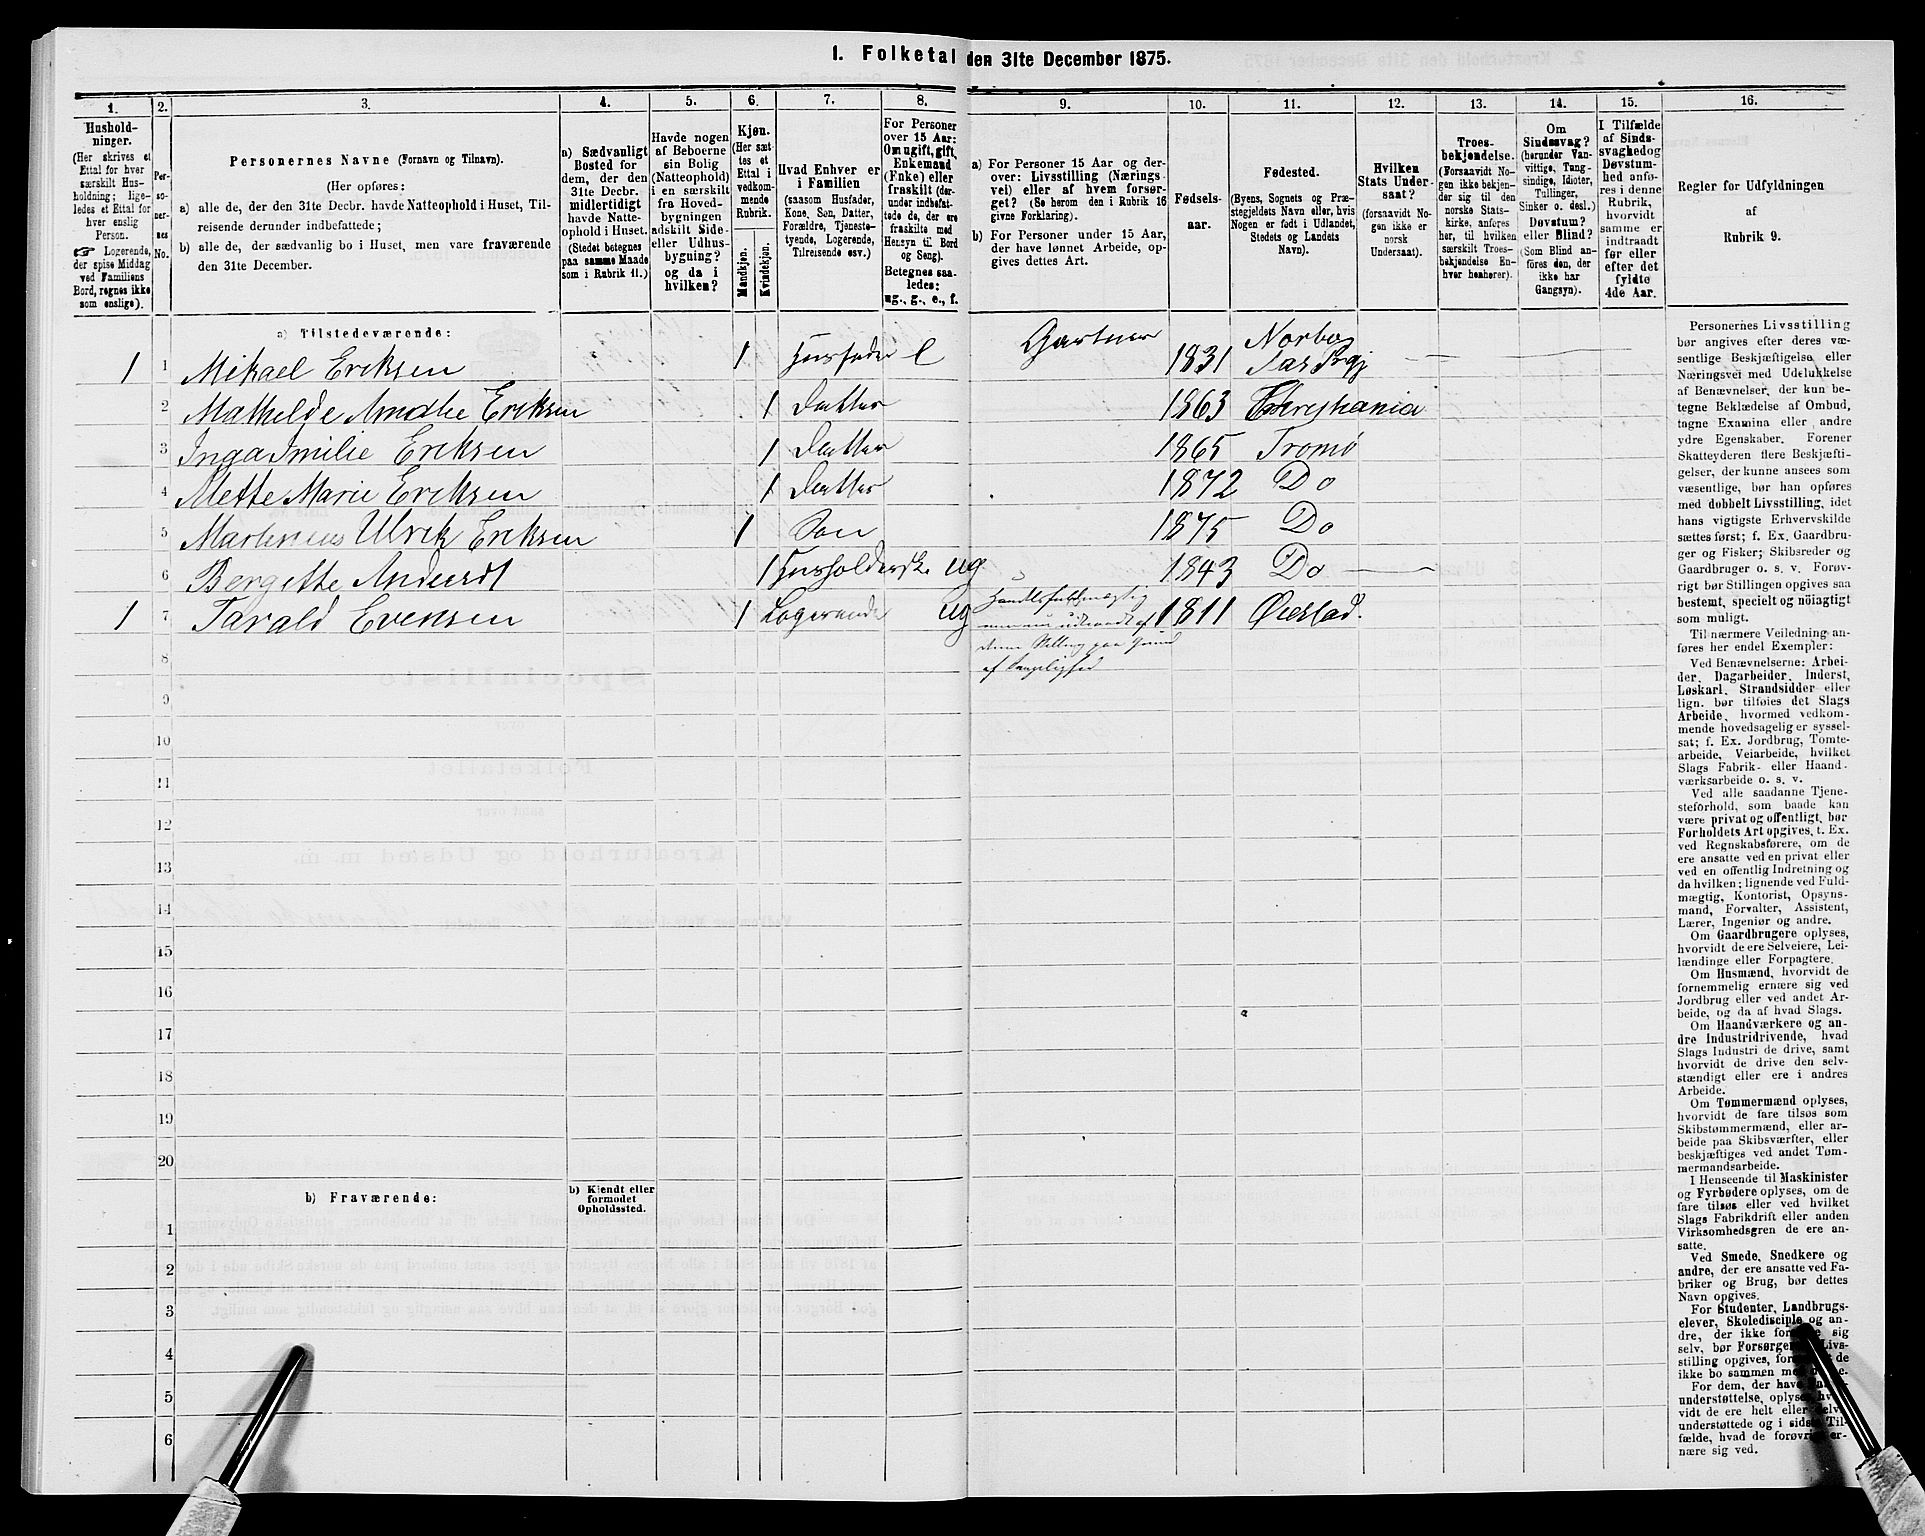 1. Folketal den 31te December 1875.
1.
Hushold-
ninger.
(Her skrives et
Ettal for hver
særskilt Hus-
holdning; lige-
ledes et Ettal for
hver enslig
Person.
☞ Logerende,
der spise Middag
ved Familiens
Bord, regnes ikke
som enslige).
2.
Per-
so-
ner-
nes
No.
3.
Personernes Navne (Fornavn og Tilnavn).
(Her opføres:
a) alle de, der den 31te Decbr. havde Natteophold i Huset, Til-
reisende derunder indbefattede;
b) alle de, der sædvanlig bo i Huset, men vare fraværende
den 31te December.
4.
a) Sædvanligt
Bosted for
dem, der den
31te Decbr.
midlertidigt
havde Natte-
ophold i Huset.
(Stedet betegnes
paa samme Maade
som i Rubrik 11.)
5.
Havde nogen
af Beboerne
sin Bolig
(Natteophold)
i en særskilt
fra Hoved-
bygningen
adskilt Side-
eller Udhus-
bygning?
og da i
hvilken?
6.
Kjøn.
(Her sæt-
tes et
Ettal i
vedkom-
mende
Rubrik.
Mandkjøn.
Kvindekjøn.
7.
Hvad Enhver er
i Familien
(saasom Husfader,
Kone, Søn, Datter,
Forældre, Tjeneste-
tyende, Logerende,
Tilreisende osv.)
8.
For Personer
over 15 Aar:
Om ugift, gift,
Enkemand
(Enke) eller
fraskilt (der-
under indbefat-
tede de, der ere
fraskilte med
Hensyn til Bord
og Seng).
Betegnes saa-
ledes:
ug., g., e., f.
9.
a) For Personer 15 Aar og der-
over: Livsstilling (Nærings-
vei) eller af hvem forsør-
get? (Se herom den i Rubrik 16
givne Forklaring).
b) For Personer under 15 Aar,
der have lønnet Arbeide, op-
gives dettes Art.
10.
Fødsels-
aar.
11.
Fødested.
(Byens, Sognets og Præ-
stegjeldets Navn eller, hvis
Nogen er født i Udlandet,
Stedets og Landets
Navn).
12.
Hvilken
Stats Under-
saat?
(forsaavidt No-
gen ikke er
norsk
Undersaat).
13.
Troes-
bekjendelse.
(Forsaavidt No-
gen ikke bekjen-
der sig til den
norske Stats-
kirke, anføres
her, til hvilken
særskilt Troes-
bekjendelse En-
hver henhører).
14.
Om
Sindssvag?
(herunder Van-
vittige, Tung-
sindige, Idioter,
Tullinger,
Sinker o. desl.)
Døvstum?
eller Blind?
(Som Blind an-
føres den, der
ikke har
Gangsyn).
15.
I Tilfælde
af Sinds-
svaghed og
Døvstum-
hed anfø-
res i denne
Rubrik,
hvorvidt
samme er
indtraadt
før eller
efter det
fyldte
4de Aar.
16.
Regler for Udfyldningen
af
Rubrik 9.
a) Tilstedeværende:
1 1 Mikael Eriksen 1 Husfader e Gartner 1831 Norbo
Tas Prgj
2 Mathilde Amalie Eriksen 1 Datter 1863 Christiania
3 Inga Emilie Eriksen 1 Datter 1865 Tromø
4 Mette Marie Eriksen 1 Datter 1872 Do
5 Martinius Ulrik Eriksen 1 Søn 1875 Do
6 Bergitte 1 Husholderske ug 1843 Do
1 7 Tarald Evensen 1 Logerende ug Handelsfuldmægtig 1811 Øiestad.
denne Stilling paa Grund
af Svagelighed
8
9
10
11
12
13
14
15
16
17
18
19
20
b) Fraværende:
b) Kjendt eller
formodet
Opholdssted.
1
2
3
4
5
6
Personernes Livsstilling
bør angives efter deres væ-
sentlige Beskjæftigelse eller
Næringsvei med Udelukkelse
af Benævnelser, der kun be-
tegne Beklædelse af Ombud,
tagne Examina eller andre
ydre Egenskaber. Forener
Skatteyderen flere Beskjæfti-
gelser, der kunne ansees som
væsentlige, bør han opføres
med dobbelt Livsstilling, idet
hans vigtigste Erhvervskilde
sættes først; f. Ex. Gaardbru-
ger og Fisker; Skibsreder og
Gaardbruger o. s. v. Forøv-
rigt bør Stillingen opgives saa
bestemt, specielt og nöiagtigt
som muligt.
Til nærmere Veiledning an-
føres her endel Exempler:
Ved Benævnelserne: Arbei-
der, Dagarbeider, Inderst,
Løskarl, Strandsidder eller
lign. bør tilføies det Slags
Arbeide, hvormed vedkom-
mende hovedsagelig er syssel-
sat; f. Ex. Jordbrug, Tomte-
arbeide, Veiarbeide, hvilket
Slags Fabrik- eller Haand-
værksarbeide o. s. v.
Ved alle saadanne Tjene-
steforhold, som baade kan
være privat og offentligt, bør
Forholdets Art opgives, t. Ex.
ved Regnskabsførere, om de
ere ansatte ved en privat eller
ved en offentlig Indretning og
da hvilken; lignende ved Fuld-
mægtig, Kontorist, Opsyns-
mand, Forvalter, Assistent,
Lærer, Ingeniør og andre.
Om Gaardbrugere oplyses,
hvorvidt de ere Selveiere, Lei-
lændinge eller Forpagtere.
Om Husmænd, hvorvidt de
fornemmelig ernære sig ved
Jordbrug eller ved andet Ar-
beide, og da af hvad Slags.
Om Haandværkere og an-
dre Industridrivende, hvad
Slags Industri de drive, samt
hvorvidt de drive den selv-
stændigt eller ere i andres
Arbeide.
Om Tømmermænd oplyses,
hvorvidt de fare tilsøs som
Skibstømmermænd, eller ar-
beide paa Skibsværfter, eller
beskjæftiges ved andet Tøm-
mermandsarbeide.
I Henseende til Maskinister
og Fyrbødere oplyses, om de
fare tilsøs eller ved hvilket
Slags Fabrikdrift eller anden
Virksomhedsgren de ere an-
satte.
Ved Smede, Snedkere og
andre, der ere ansatte ved Fa-
briker og Brug, bør dettes
Navn opgives.
For Studenter, Landbrugs-
elever, Skoledisciple og an-
dre, der ikke sig
selv, bør Livs-
stilling opgives, de
ikke bo sammen
For dem, der have
understøttelse, oplyses,
vidt de ere helt eller
understøttede og i sidste Til-
fælde, hvad de forøvrigt er-
nære sig ved.